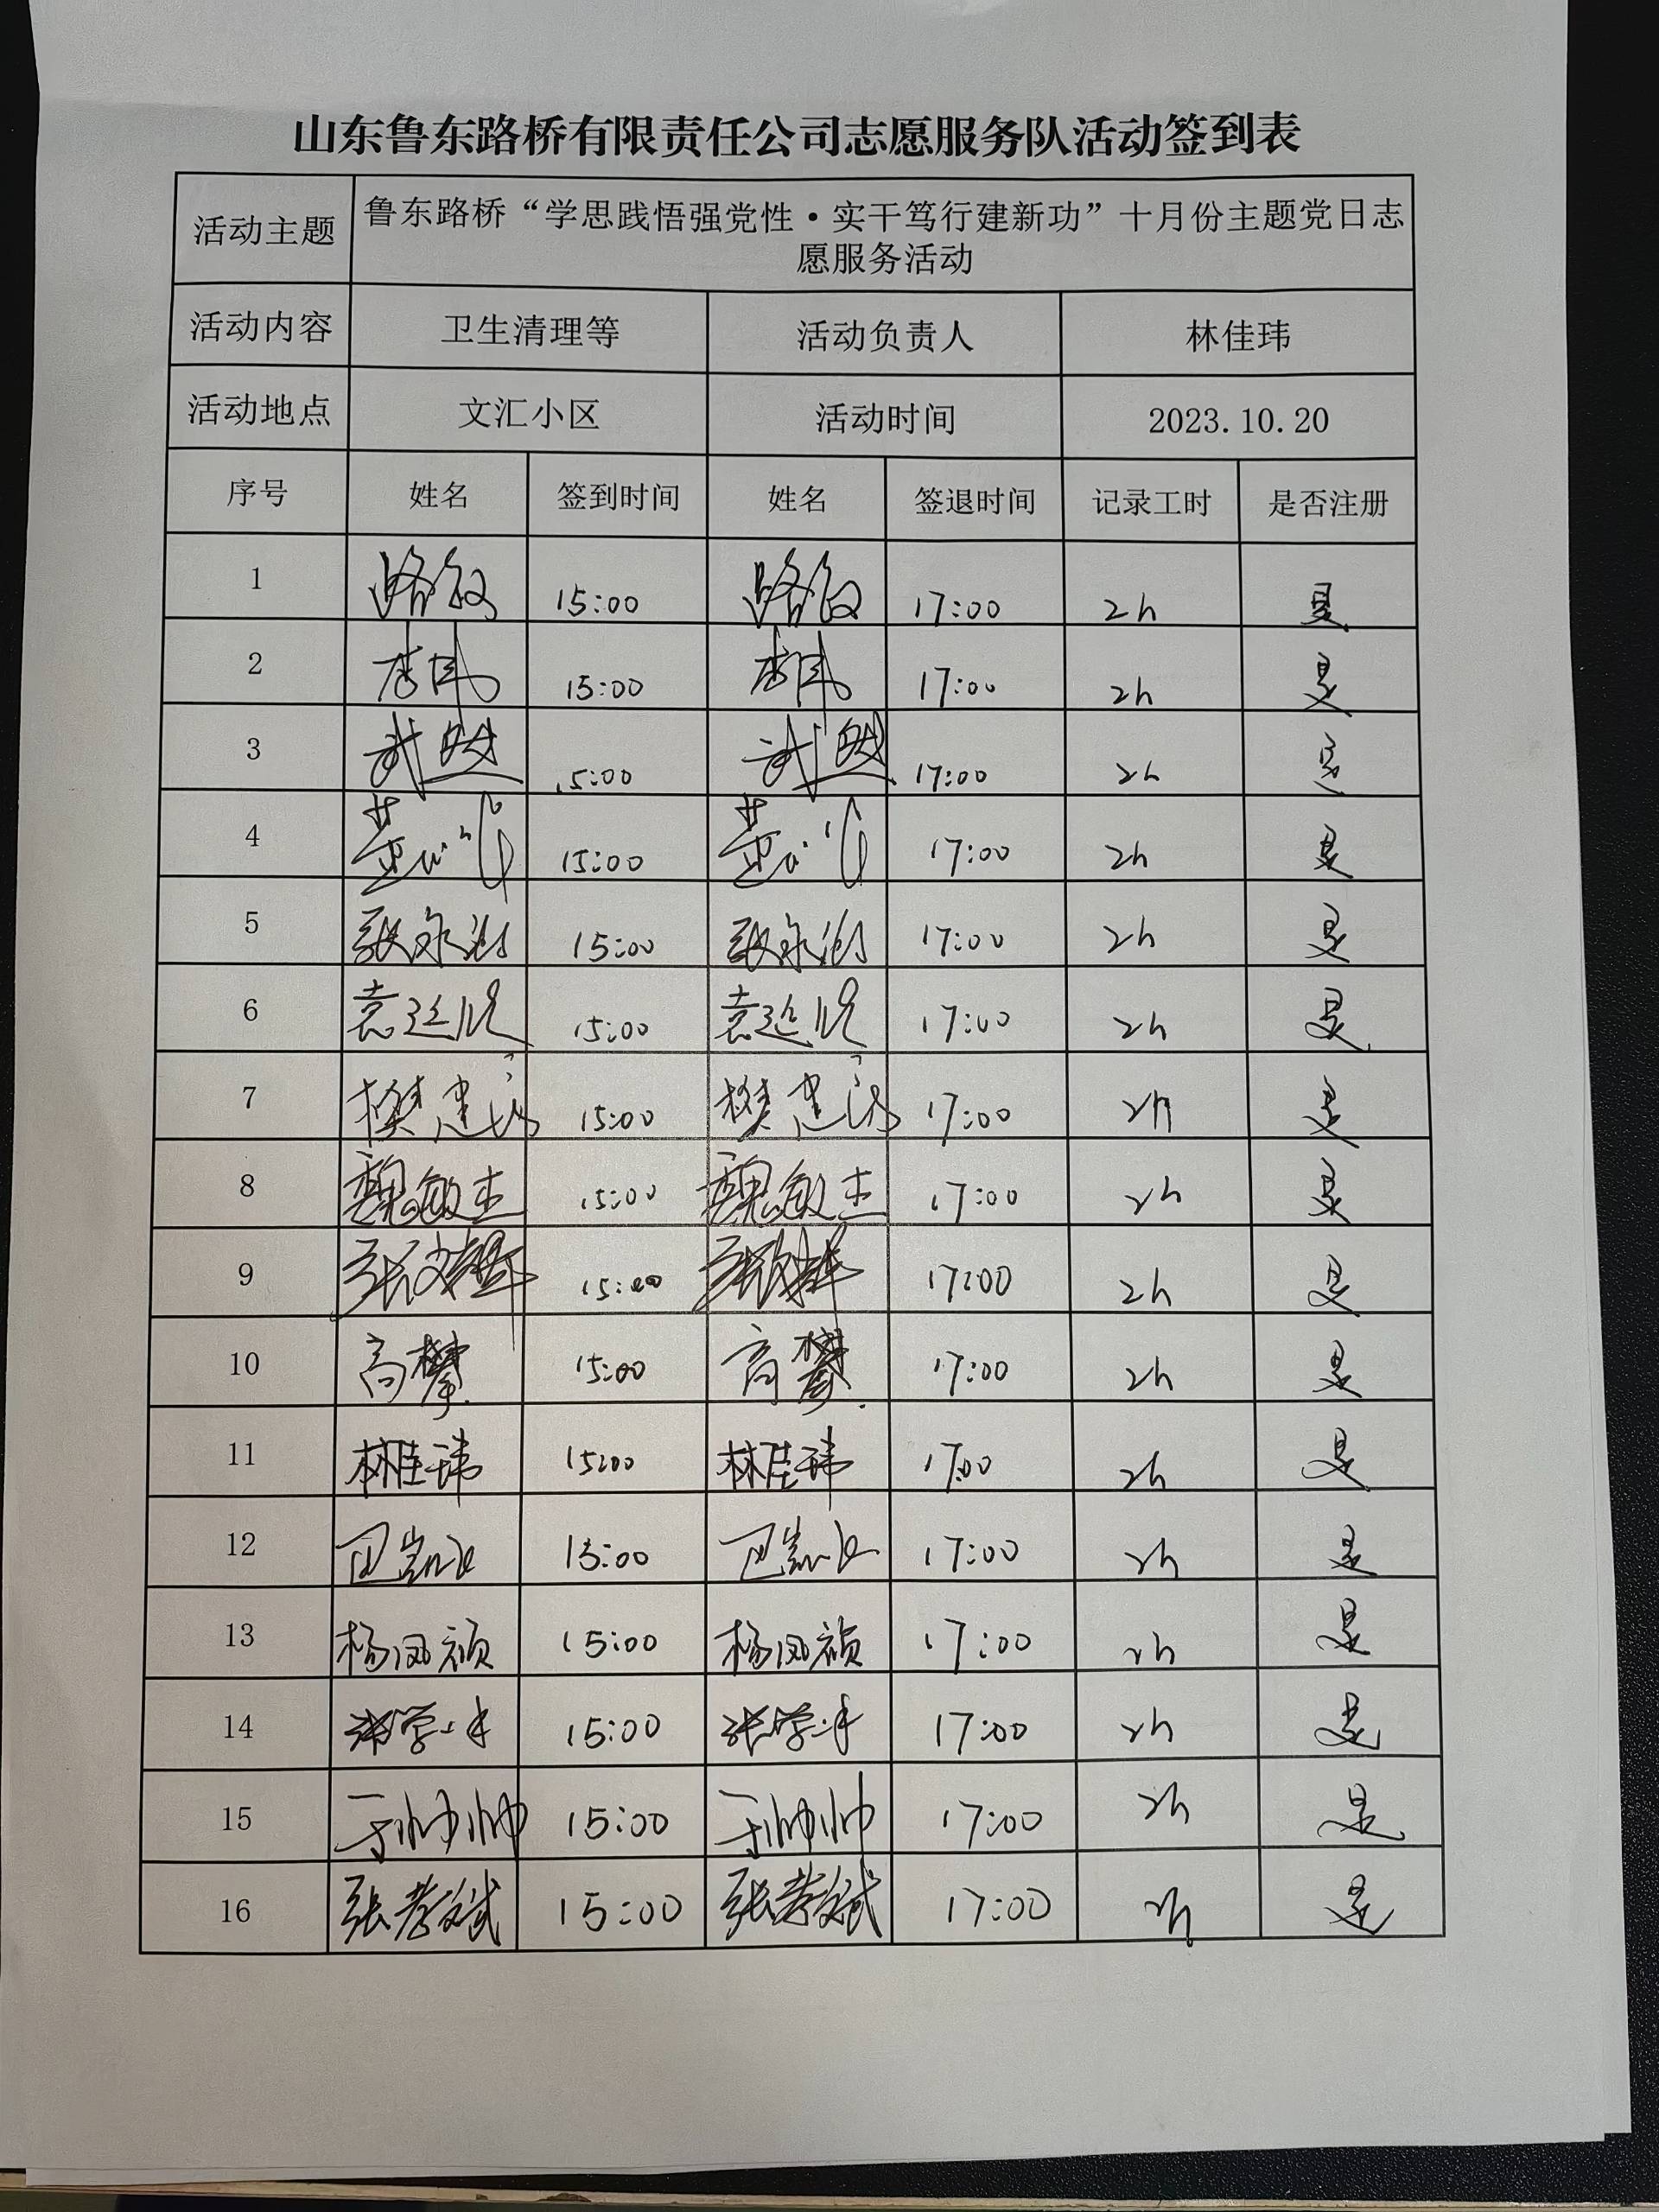 山东鲁东路桥有限责任公司志愿服务队活动签到表
活动主题 鲁东路桥“学思践悟强党性·实干笃行建新功”十月份主题党日志
愿服务活动
活动内容 卫生清理等 活动负责人 林佳玮
活动地点 文汇小区 活动时间 2023.10.20
序号 姓名 签到时间 姓名 签退时间 记录工时 是否注册
1 路敏 15:00 路敏 17:00 2h 是
2 李伟 15:00 李伟 17:00 2h 是
3 武 15:00 武 17:00 2h 是
4 15:00 17:00 2h 是
5 张永 15:00 张永 17:00 2h 是
6 袁延 15:00 袁延 17:00 2h 是
7 樊建 15:00 樊建 17:00 2h 是
8 魏敏杰 15:00 魏敏杰 17:00 2h 是
9 张 15:00 张 17:00 2h 是
10 高攀 15:00 高攀 17:00 2h 是
11 林佳玮 15:00 林佳玮 17:00 2h 是
12 15:00 17:00 2h 是
13 杨凤祯 15:00 杨凤祯 17:00 2h 是
14 张学 15:00 张学 17:00 2h 是
15 于帅帅 15:00 于帅帅 17:00 2h 是
16 张孝斌 15:00 张孝斌 17:00 2h 是